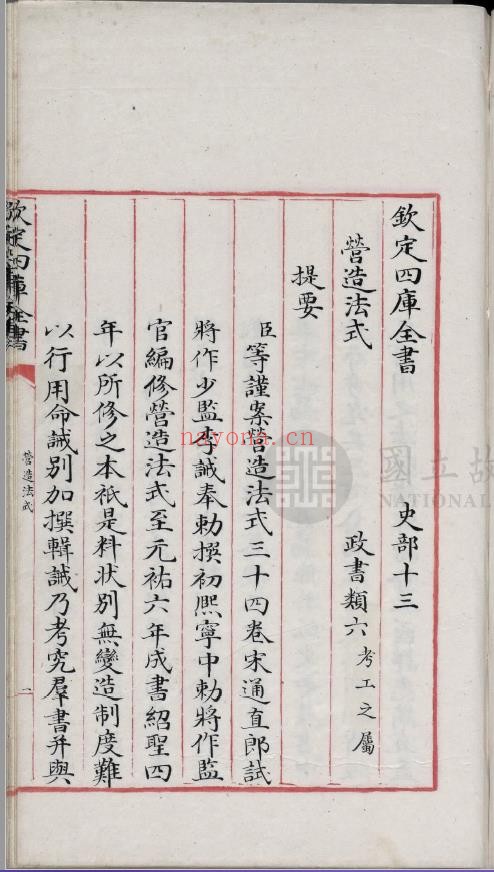 欽定四庫全書　史部十三
營造法式　政書類六考工之屬
提要
臣等謹案營造法式三十四卷宋通直郎試
將作少監李誡奉勅撰初熈寧中勅將作監
官編修營造法式至元祐六年成書紹聖四
年以所修之本祇是料狀別無變造制度難
以行用命誡別加撰輯誡乃考究羣書幷與
欽定四庫全書
營造法式
一
nayona.cn
國立故
NATIONAL